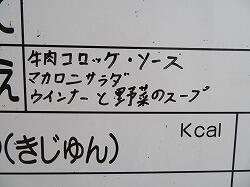 牛肉コロッケ・ソース
え
マカロニサラダ
ウインナーと野菜のスープ
Kcal
(きじゅん)